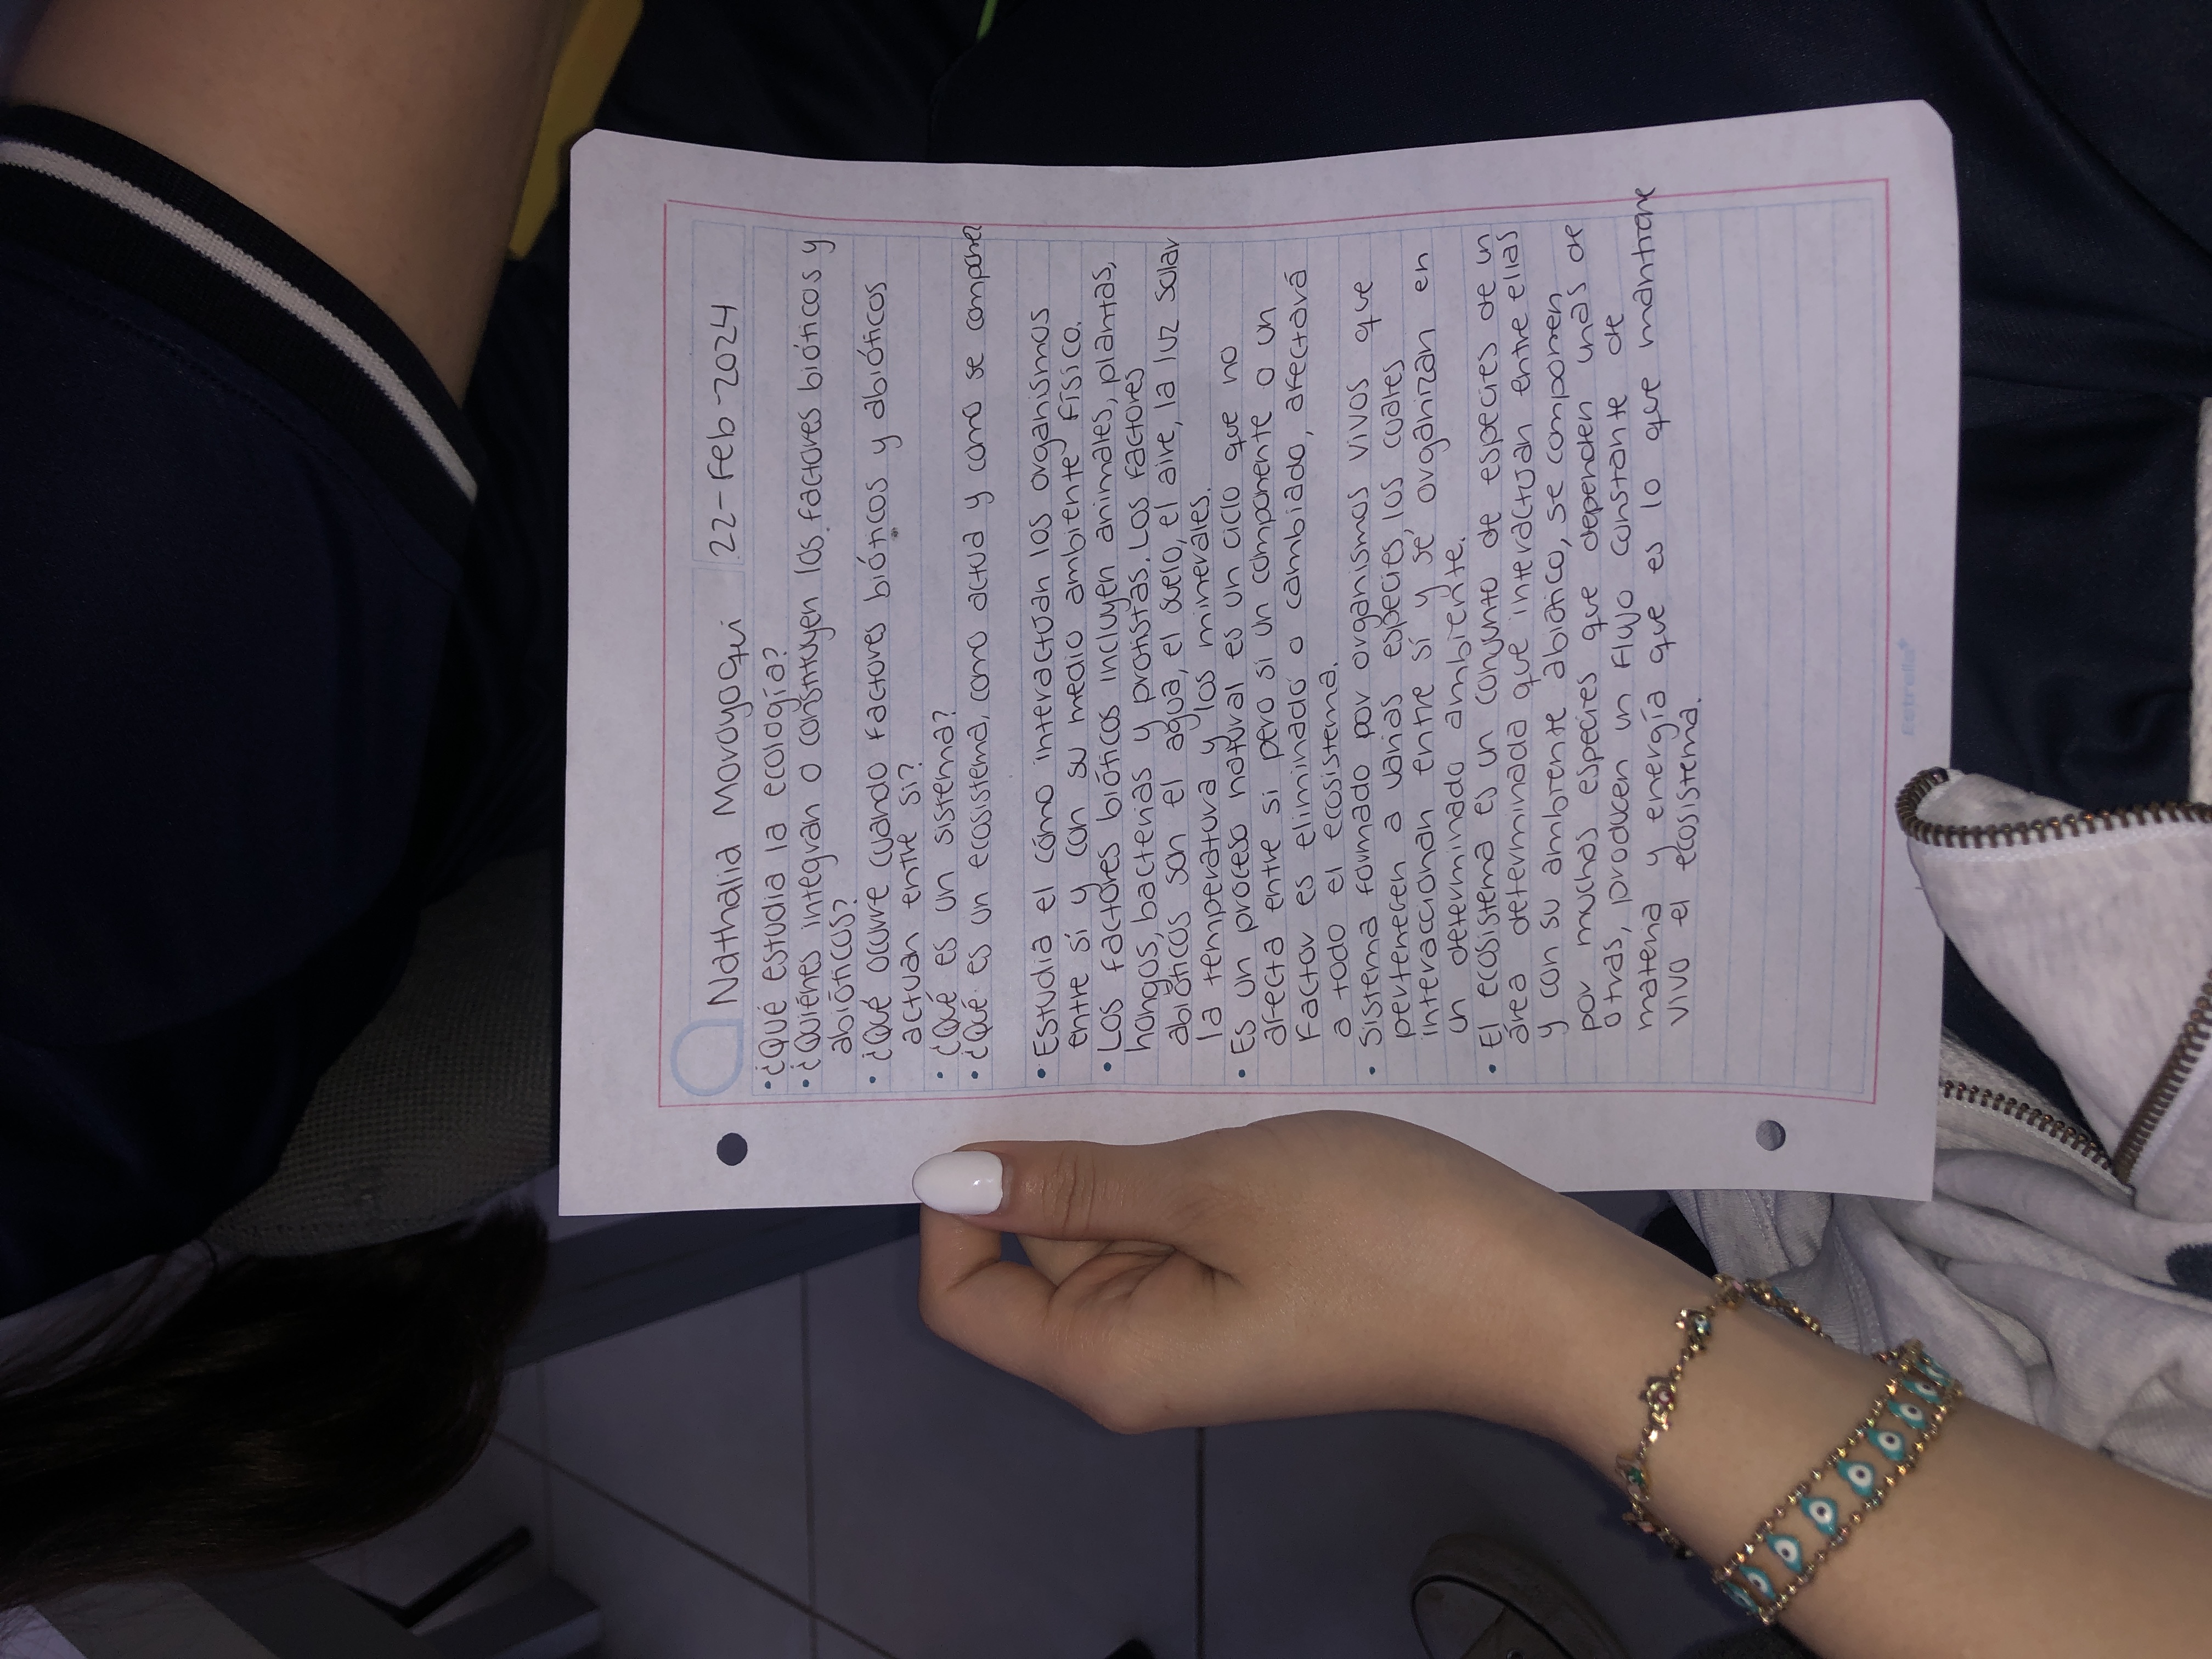 Nathalia Moroyoqui 22-Feb-2024
• ¿Qué estudia la ecología?
• ¿Quiénes integran o constituyen los factores bióticos y
abióticos?
• ¿Qué ocurre cuando factores bióticos y abióticos
actuan entre si?
• ¿Qué es un sistema?
• ¿Qué es un ecosistema, como actua y como se compone?
• Estudia el cómo interactúan los organismos
entre sí y con su medio ambiente físico.
• Los factores bióticos incluyen animales, plantas,
hongos, bacterias y protistas. Los factores
abióticos son el agua, el suelo, el aire, la luz solar
la temperatura y los minerales.
• Es un proceso natural es un ciclo que no
afecta entre si pero si un componente o un
factor es eliminado o cambiado, afectará
a todo el ecosistema.
• Sistema formado por organismos vivos que
pertenecen a varias especies, los cuales
interaccionan entre sí y se organizan en
un determinado ambiente.
• El ecosistema es un conjunto de especies de un
área determinada que interactúan entre ellas
y con su ambiente abiótico, se componen
por muchas especies que dependen unas de
otras, producen un flujo constante de
materia y energía que es lo que mantiene
vivo el ecosistema.
Estrella